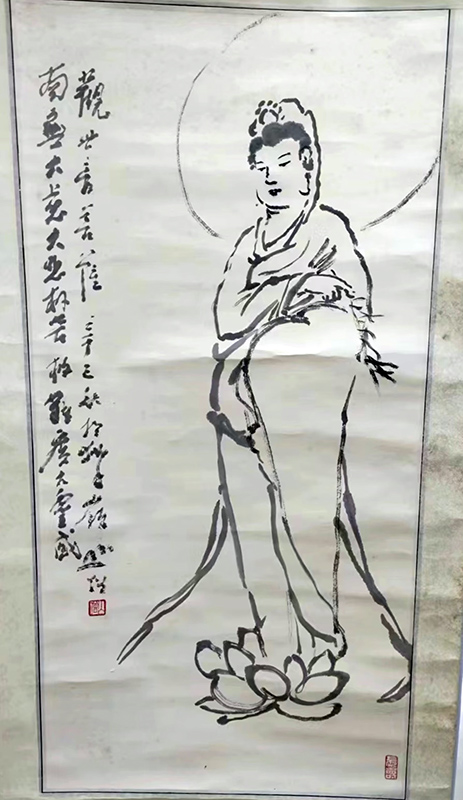 南無大慈大悲救苦救難廣大靈感
觀世音菩薩 三十三秋於獅子嶺